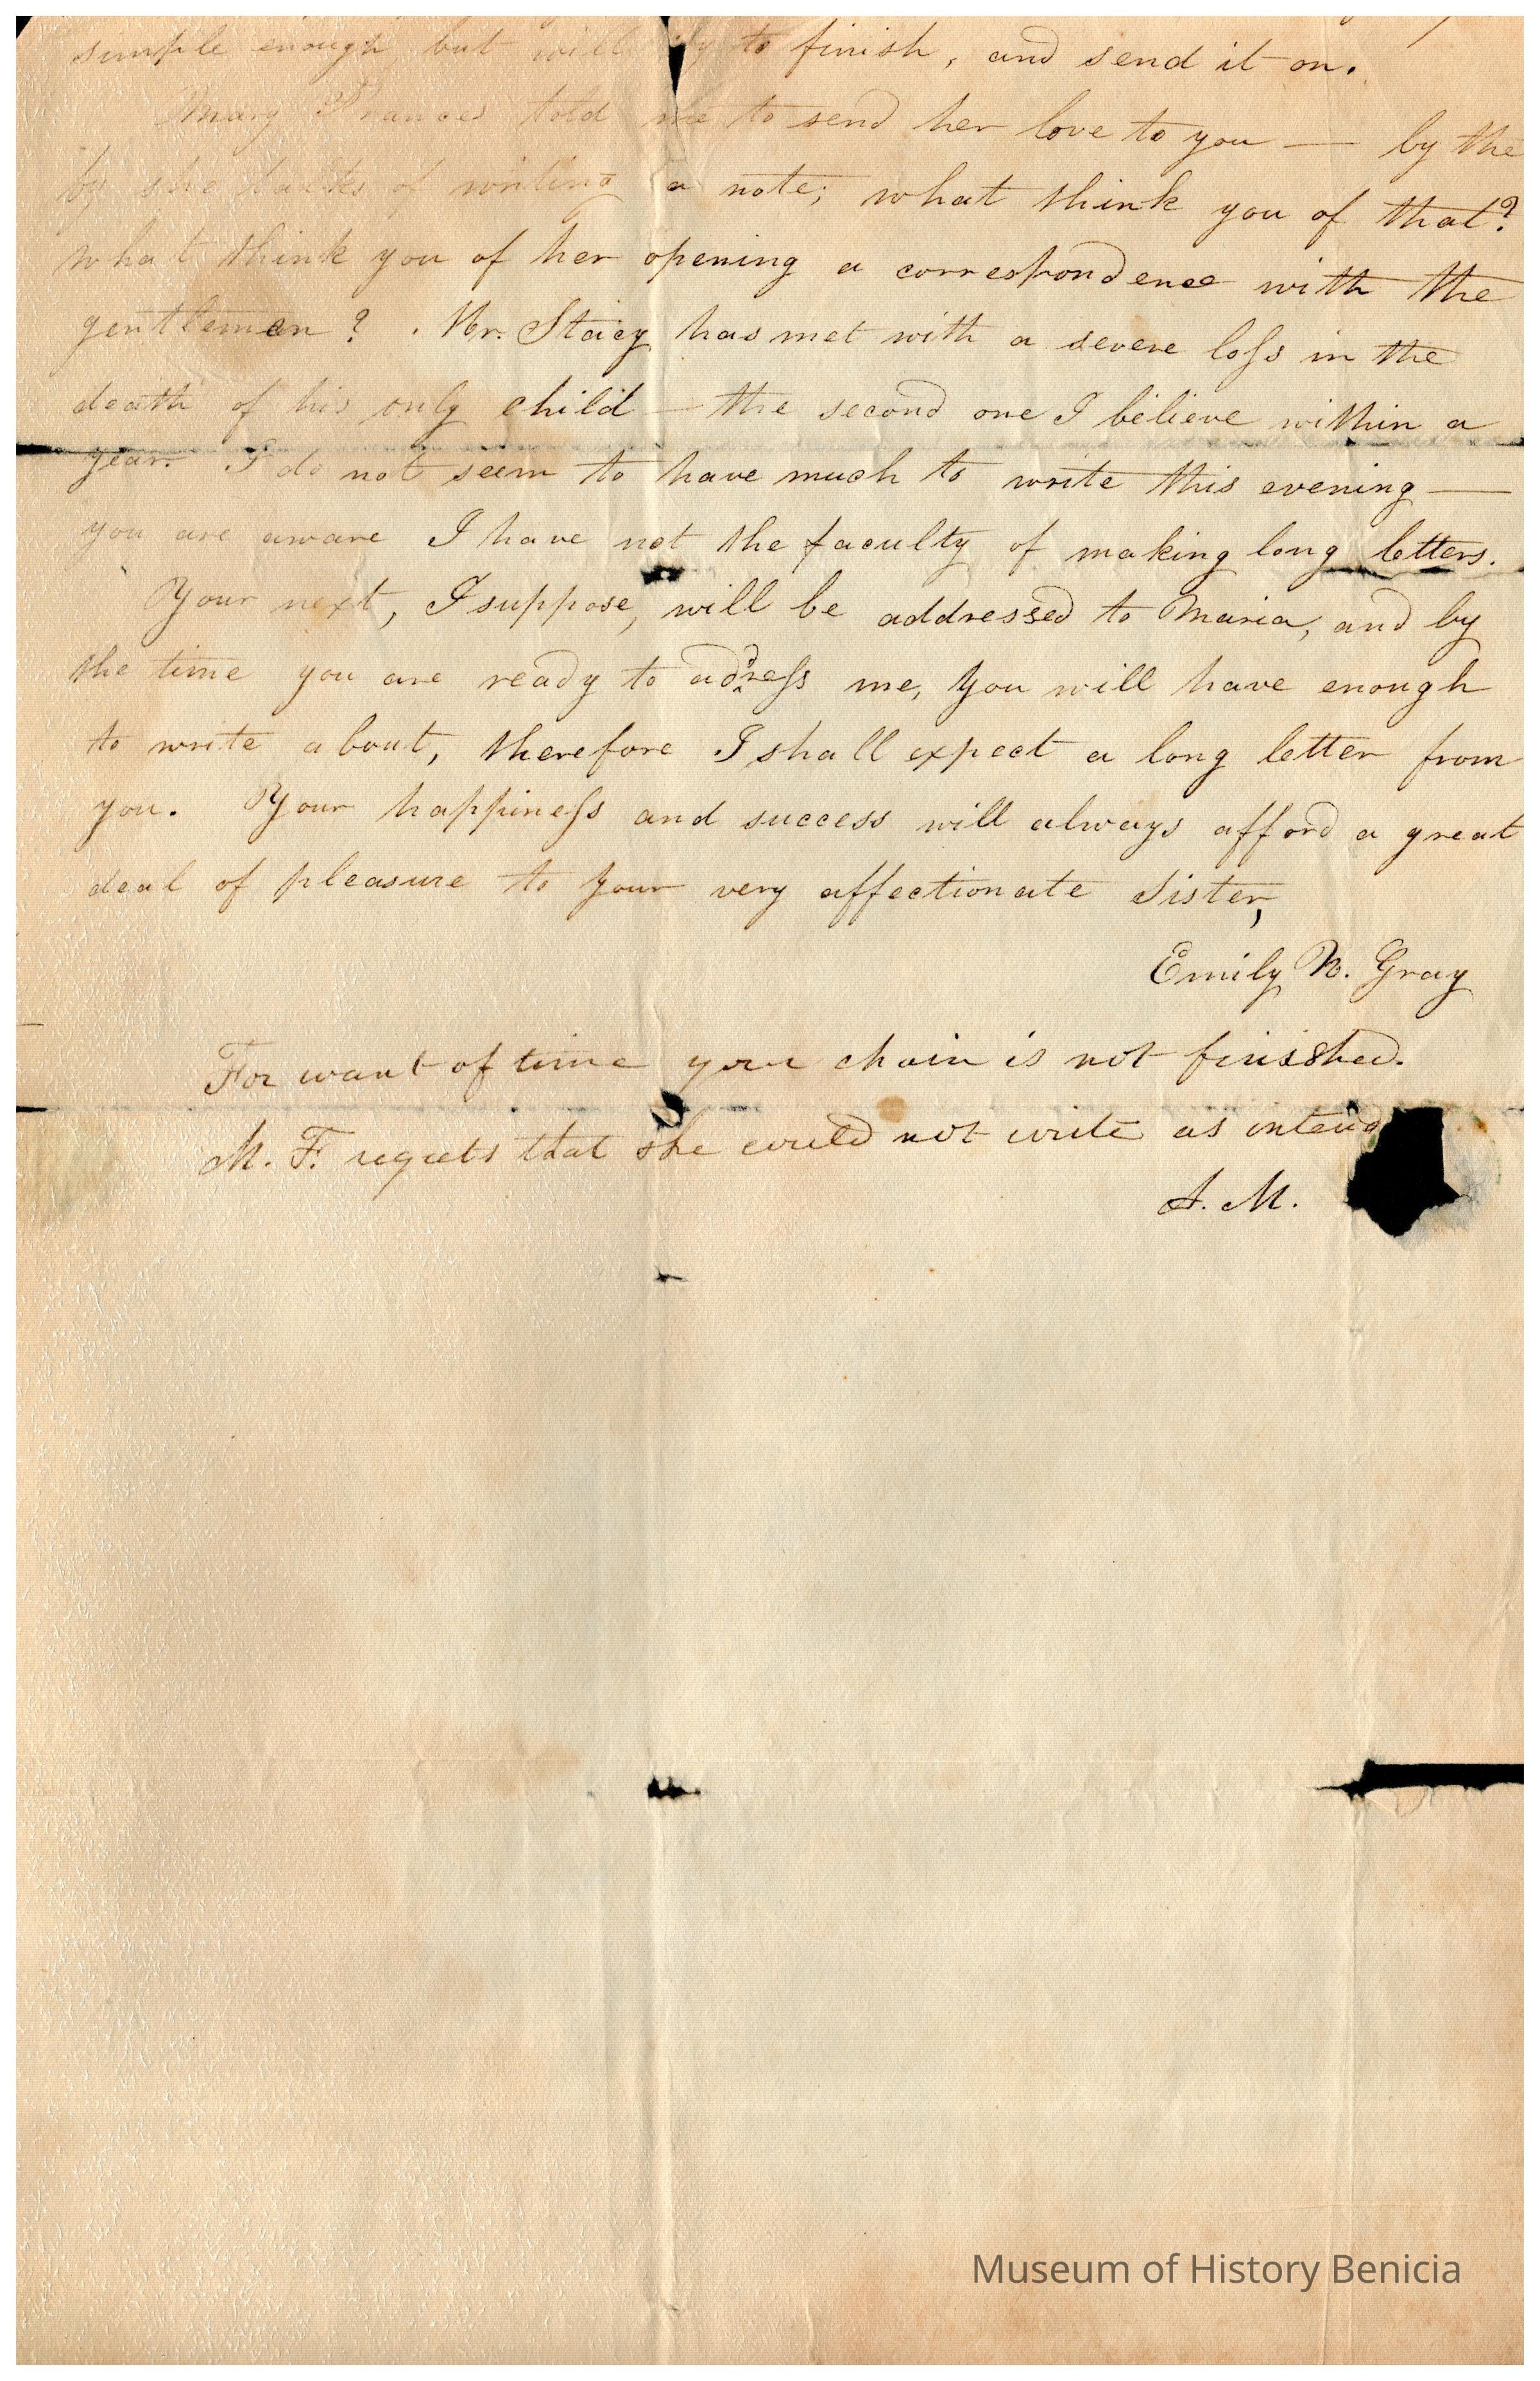 simple enough, but will try to finish, and send it on.
Mary Frances told me to send her love to you — by the
by she talks of writing a note; what think you of that?
what think you of her opening a correspondence with the
gentlemen? . Mr. Stacy has met with a severe loſs in the
death of his only child — the second one I believe within a
year. I do not seem to have much to write this evening —
you are aware I have not the faculty of making long letters.
Your next, I suppose, will be addressed to Maria, and by
the time you are ready to addreſs me, you will have enough
to write about, therefore I shall expect a long letter from
you. Your happineſs and success will always afford a great
deal of pleasure to your very affectionate Sister,
Emily N. Gray
For want of time your chain is not finished.
M. F. regrets that she could not write as intend
A. M.
Museum of History Benicia